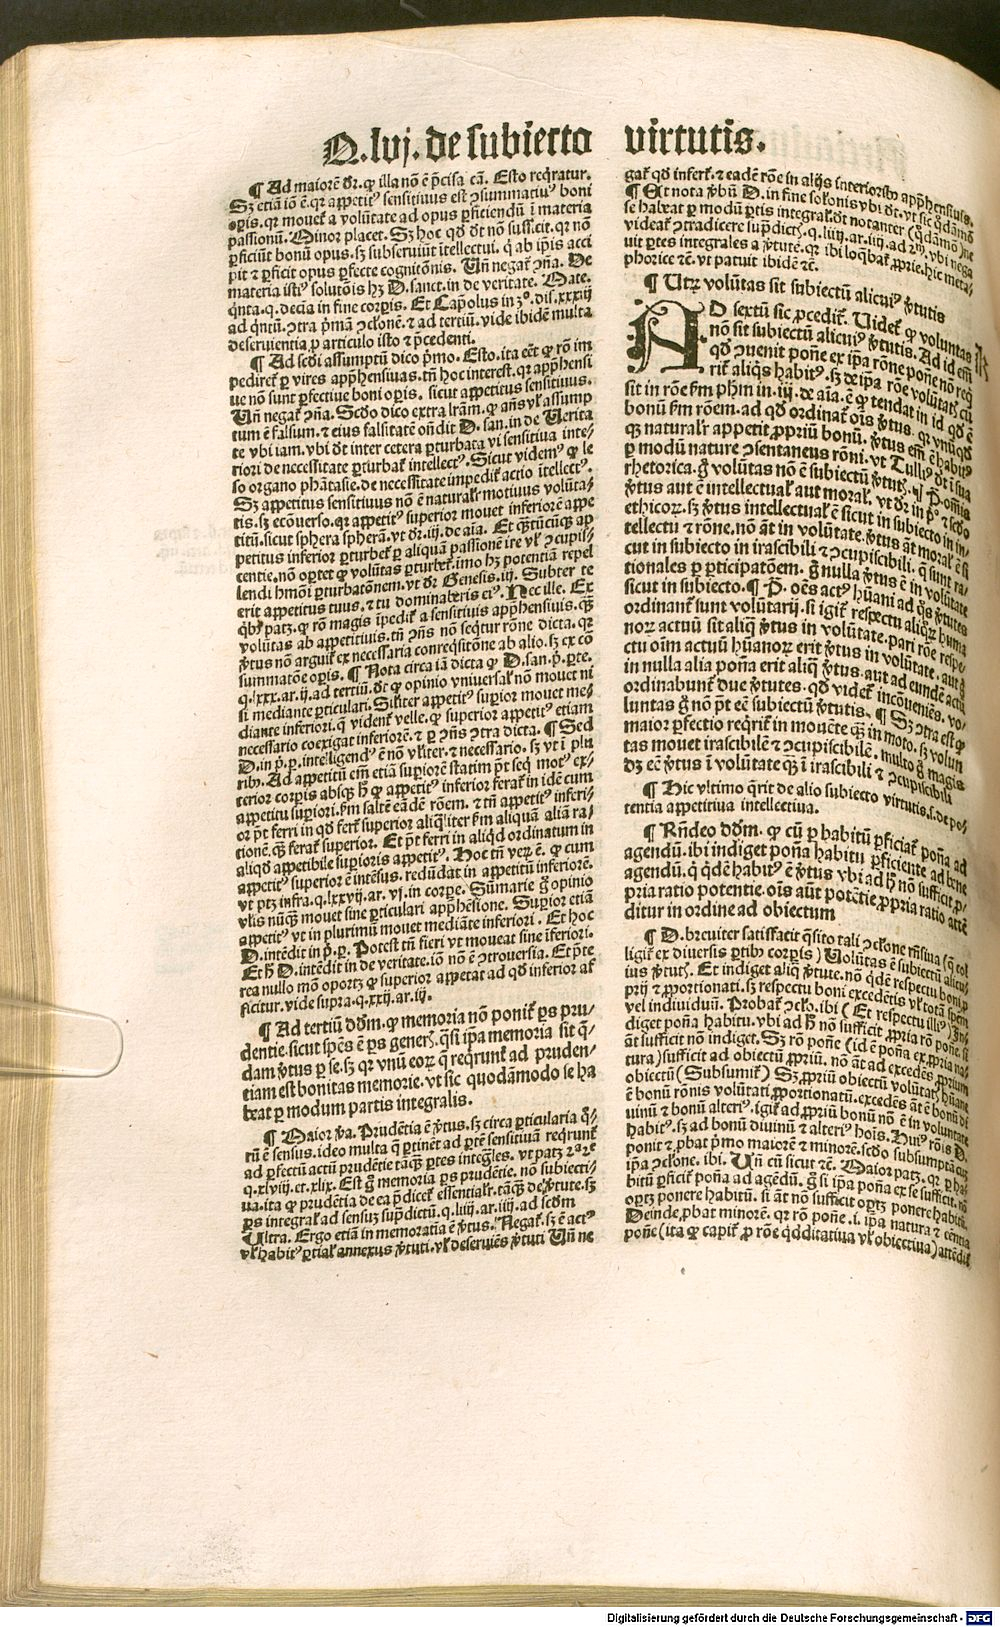 Q.lvj. de subiecto virtutis.
¶ Ad maiorē dr̄. ꝙ illa nō ē p̄cisa cā. Esto reqͥratur.
Sꝫ etiā iō ē. qꝛ appetitꝰ sensitiuus est ꝯsummatiuꝰ boni
oꝑis. qꝛ mouet᷑ a volūtate ad opus ꝑficiendū ī materia
passionū. Minor placet. Sꝫ hoc qd̄ dt̄ nō sufficit. qꝛ nō
ꝑficiunt bonū opus. sꝫ subseruiūt ītellectui. q̄ ab ip̄is acci
pit ⁊ ꝑficit opus ꝑfecte cognitōnis. Vn̄ negat᷑ ꝯn̄a. De
materia istiꝰ solutōis hꝫ D. sanct. in de veritate. Mate.
qͥnta. q. decia in fine corꝑis. Et Cap̄olus in 3°. dis. xxxiij
ad qͥntū. ꝯtra pͥmā ꝯclonē. ⁊ ad tertiū. vide ibidē multa
deseruientia ꝑ articulo isto ⁊ p̄cedenti.
¶ Ad scd̄i assumptū dico pͥmo. Esto. ita eēt ꝙ rō im
pediret᷑ ꝑ vires app̄hensiuas. tn̄ hoc interest. qꝛ app̄hensi
ue nō sunt ꝑfectiue boni oꝑis. sicut appetitus sensitiuus.
Vn̄ negat᷑ ꝯn̄a. Scd̄o dico extra lr̄am. ꝙ an̄s vl᷑ assump
tum ē falsum. ⁊ eius falsitatē on̄dit D. san. in de Verita
te vbi iam. vbi dt̄ inter cetera ꝑturbata vi sensitiua inte⸗
riori de necessitate ꝑturbat᷑ intellectꝰ. Sicut videmꝰ ꝙ le
so organo phātasie. de necessitate impedit᷑ actio ītellectꝰ.
Sꝫ appetitus sensitiuus nō ē naturalr̄ motiuus volūta⸗
tis. sꝫ ecōuerso. qꝛ appetitꝰ superior mouet inferiorē appe
titū. sicut sphera spherā. vt dr̄. iij. de aīa. Et qͣ̄tūcūqꝫ ap
petitus inferior ꝑturbet᷑ ꝑ aliquā passionē ire vl᷑ ꝯcupis⸗
centie. nō oꝑtet ꝙ volūtas ꝑturbet᷑. imo hꝫ potentiā repel
lendi hmōi ꝑturbatōnem. vt dr̄ Genesis. iij. Subter te
erit appetitus tuus. ⁊ tu dominaberis eiꝰ. Nec ille. Ex
qͥbꝰ patꝫ. ꝙ rō magis īpedit᷑ a sensitiuis app̄hensiuis. qͣꝫ
volūtas ab appetitiuis. tn̄ ꝯn̄s nō seqͥtur rōne dicta. qꝛ
v̄tus nō arguit᷑ ex necessaria conreqͥsitōne ab alio. sꝫ ex cō
summatōe oꝑis. ¶ Nota circa iā dicta ꝙ D. san. p̄. ꝑte.
q. lxxx. ar. ij. ad tertiū. dt̄ ꝙ opinio vniuersal᷑ nō mouet ni
si mediante ꝑticulari. Siliter appetitꝰ suꝑior mouet me⸗
diante inferiori. q̄ vident᷑ velle. ꝙ superior appetitꝰ etiam
necessario coexigat inferiorē. ⁊ ꝑ ꝯn̄s ꝯtra dicta. ¶ Sed
D. in p̄. ꝑ. intelligendꝰ ē nō vl᷑iter. ⁊ necessario. sꝫ vt ī plu
ribꝰ. Ad appetitū em̄ etiā suꝑiorē statim p̄t seqͥ motꝰ ex⸗
terior corꝑis absqꝫ h̄ ꝙ appetitꝰ inferior ferat᷑ in idē cum
appetitu suꝑiori. fm̄ saltē eādē rōem. ⁊ tn̄ appetitꝰ inferi⸗
or p̄t ferri in qd̄ fert᷑ superior aliqͣliter fm̄ aliquā aliā ra⸗
tionē. qͣꝫ ferat᷑ superior. Et p̄t ferri in aliqͥd ordinatum in
aliqd̄ appetibile suꝑioris appetitꝰ. Hoc tn̄ veꝝ ē. ꝙ cum
appetitꝰ superior ē intēsus. redūdat in appetitū inferiorē.
vt ptꝫ infra. q. lxxvij. ar. vj. in corꝑe. Sūmarie ḡ opinio
vl᷑is nūqͣꝫ mouet sine ꝑticulari app̄hēsione. Suꝑior etiā
appetitꝰ vt in plurimū mouet mediāte inferiori. Et hoc
D. intēdit in p̄. ꝑ. Potest tn̄ fieri vt moueat sine īferiori.
Et h̄ D. intēdit in de veritate. iō nō ē ꝯtrouersia. Et p̄te
rea nullo mō oportꝫ ꝙ superior appetat ad qd̄ inferior af
ficitur. vide supra. q. xxij. ar. iij.
¶ Ad tertiū dd̄m. ꝙ memoria nō ponit᷑ ꝑs pru⸗
dentie. sicut spēs ē ꝑs generꝭ. qͣsi ip̄a memoria sit q̄⸗
dam v̄tus ꝑ se. sꝫ qꝛ vnū eoꝝ q̄ reqͥrunt᷑ ad pruden⸗
tiam est bonitas memorie. vt sic quodāmodo se ha
beat ꝑ modum partis integralis.
¶ Maior v̄a. Prudētia ē v̄tus. sꝫ circa ꝑticularia q̄⸗
rū ē sensus. ideo multa q̄ ꝑtinēt ad ꝑtē sensitiuā reqͥrunt᷑
ad ꝑfectū actū prudētie tāqͣꝫ ꝑtes integͣles. vt patꝫ
q. xlviij. et. xlix. Est ḡ memoria ꝑs prudētie. nō subiecti⸗
ua. ita ꝙ prudētia de ea p̄dicet᷑ essentialr̄. tāqͣꝫ de v̄tute. sꝫ
ꝑs integral᷑ ad sensuꝫ supͣdictū. q. liiij. ar. iiij. ad scd̄m
Vltra. Ergo etiā in memoratia ē v̄tus. Negat᷑. sꝫ ē actꝰ
vl᷑ habitꝰ ꝑtial᷑ annexus v̄tuti. vl᷑ deseruiēs v̄tuti Vn̄ ne
gat᷑ qd̄ infert᷑. ⁊ eadē rōe in alijs interioribꝰ app̄hensiuis.
¶ Et nota v̄bū D. in fine solōnis vbi dt̄. vt sic qͦdāmō
se habeat ꝑ modū ꝑtis integral᷑. dt̄ notanter (qͦdāmō) ne
videat᷑ ꝯtradicere supͣdictꝭ. q. liiij. ar. iiij. ad 2ᵐ. vbi nega
uit ꝑtes integrales a v̄tute. qꝛ ibi loqͣbat᷑ ꝓprie. hic meta⸗
phorice ⁊c̄. vt patuit ibidē ⁊c̄.
¶ Utꝝ volūtas sit subiectū alicuiꝰ v̄tutis
AD sextū sic ꝓcedit᷑. Videt᷑ ꝙ voluntas
nō sit subiectū alicuiꝰ v̄tutis. Ad id em̄
qd̄ ꝯuenit poñe ex ip̄a rōne poñe nō req
rit᷑ aliqͥs habitꝰ. sꝫ de ip̄a rōe volūtatꝭ cū
sit in rōe fm̄ phm̄ in. iij. de aīa. ē ꝙ tendat in id qd̄ ē
bonū fm̄ rōem. ad qd̄ ordinat᷑ oīs v̄tus. qꝛ vnūqd̄
qꝫ naturalr̄ appetit ꝓpriū bonū. v̄tus em̄ ē habitꝰ
ꝑ modū nature ꝯsentaneus rōni. vt Tulliꝰ dt̄ ī sua
rhetorica. ḡ volūtas nō ē subiectū v̄tutꝭ. ¶ P. omīs
v̄tus aut ē intellectual᷑ aut moral᷑. vt dr̄ in pͦ. ⁊ scd̄o
ethicoꝝ. sꝫ v̄tus intellectual᷑ ē sicut in subiecto in in⸗
tellectu ⁊ rōne. nō āt in volūtate. v̄tus āt moral᷑ ē si
cut in subiecto in irascibili ⁊ ꝯcupiscibili. q̄ sunt ra⸗
tionales ꝑ ꝑticipatōem. ḡ nulla v̄tus ē in volūtate
sicut in subiecto. ¶ P. oēs actꝰ hūani ad qͦs v̄tutes
ordinant᷑ sunt volūtarij. si igit᷑ respectu aliqͦꝝ huma
noꝝ actuū sit aliq̄ v̄tus in volūtate. pari rōe respe⸗
ctu oīm actuū hūanoꝝ erit v̄tus in volūtate. aut ḡ
in nulla alia poñā erit aliq̄ v̄tus. aut ad eundē actū
ordinabunt᷑ due v̄tutes. qd̄ videt᷑ incōueniēs. vo⸗
luntas ḡ nō p̄t eē subiectū v̄tutis. ¶ Sꝫ ꝯtra est ꝙ
maior ꝑfectio reqͥrit᷑ in mouēte qͣꝫ in moto. sꝫ volun
tas mouet irascibilē ⁊ ꝯcupiscibilē. multo ḡ magis
dꝫ eē v̄tus ī volūtate qͣꝫ ī irascibili ⁊ ꝯcupiscibili
¶ Hic vltimo q̄rit de alio subiecto virtutis. s. de po⸗
tentia appetitiua intellectiua.
¶ Rn̄deo dd̄m. ꝙ cū ꝑ habitū ꝑficiat᷑ poñā ad
agendū. ibi indiget poñā habitu ꝑficiente ad bene
agendū. q̄ qͥdē habitꝰ ē v̄tus vbi ad h̄ nō sufficit ꝓ⸗
pria ratio potentie. oīs aūt potētie ꝓpria ratio attē
ditur in ordine ad obiectum
¶ D. breuiter satisfacit q̄sito tali ꝯclone rn̄siua (q̄ col
ligit᷑ ex diuersis ꝑtibꝰ corꝑis) Volūtas ē subiectū alicu⸗
ius v̄tutꝭ. Et indiget aliq̄ v̄tute. nō qͥdē respectu boni ꝓ
prij ⁊ ꝓportionati. sꝫ respectu boni excedētis vl᷑ totā spēm
vel indiuiduū. Probat᷑ ꝯclo. ibi (Et respectu illiꝰ) In⸗
diget poñā habitu. vbi ad h̄ nō sufficit ꝓpria rō poñe. si
āt sufficit nō indiget. Sꝫ rō poñe (id ē poñā ex ꝓpria na⸗
tura) sufficit ad obiectū ꝓpriū. nō āt ad excedēs ꝓprium
obiectū (Subsumit᷑) Sꝫ ꝓpriū obiectū volūtatꝭ hūane
ē bonū rōnis volūtati ꝓportionatū. excedēs āt ē bonū di
uinū ⁊ bonū alteriꝰ. igit᷑ ad ꝓpriū bonū nō ē in voluntate
habitꝰ. sꝫ ad bonū diuinū ⁊ alteriꝰ hoīs. Huiꝰ rōis D.
ponit ⁊ ꝓbat pͥmo maiorē ⁊ minorē. scd̄o subsumptā cuꝫ
ip̄a ꝯclone. ibi. Vn̄ cū sicut ⁊c̄. Maior patꝫ. qꝛ ꝑ ha⸗
bitū ꝑficit᷑ poñā ad agendū. ḡ si ip̄a poñā ex se sufficit. nō
oꝑtꝫ ponere habitū. si āt nō sufficit oꝑtꝫ ponere habitū.
Deinde ꝓbat minorē. qꝛ rō poñe. i. ip̄a natura ⁊ cēntia
poñe (ita ꝙ capit᷑ ꝓ rōe qͥdditatiua vl᷑ obiectiua) attēdit᷑
Digitalisierung gefördert durch die Deutsche Forschungsgemeinschaft - DFG